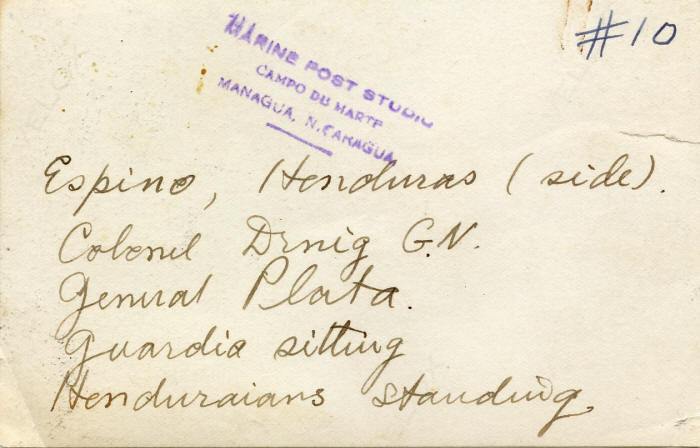 #10
MARINE POST STUDIO
CAMPO DU MARTE
MANAGUA, NICARAGUA
Espino, Henduras (side).
Colonel Drnig G.N.
General Plata.
Guardia sitting
Henduraians standing